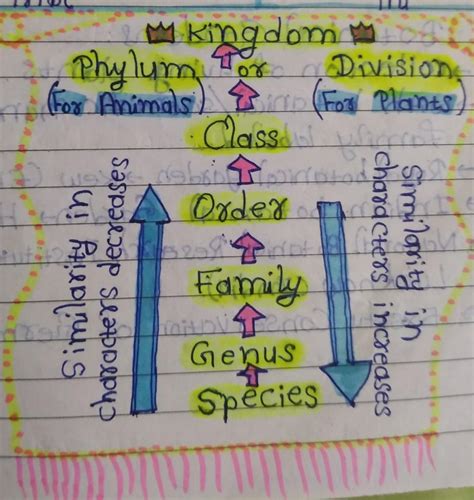 Kingdom
Phylum or Division
(For Animals) (For Plants)
Class
Order
Family
Genus
Species
Similarity in
characters decreases
Similarity in
characters increases